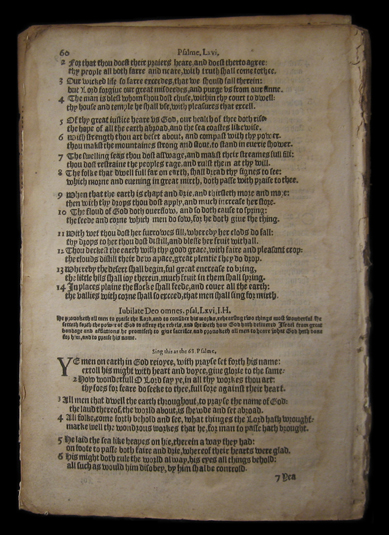 60 Psalme, Lxvi.
2 For that thou doest their praiers heare, and doest therto agree:
thy people all both farre and neare, with truth shall come to thee.
3 Our wicked life so farre exceedes, that we should fall therein:
but Lord forgiue our great misdeedes, and purge vs from our sinne.
4 The man is blest whom thou dost chuse, within thy court to dwell:
thy house and temple he shall vse, with pleasures that excell.
5 Of thy great iustice heare vs God, our health of thee doth rise
the hope of all the earth abroad, and the sea coastes likewise.
6 With strength thou art beset about, and compast with thy power.
thou makst the mountaines strong and stout, to stand in euerie shower.
7 The swelling seas thou dost asswage, and makst their streames full still:
thou dost restraine the peoples rage, and rule them at thy will.
8 The folke that dwell full far on earth, shall dread thy signes to see:
which morne and euening in great mirth, doth passe with praise to thee.
9 When that the earth is chapt and drie, and thirsteth more and more:
then with thy drops thou dost apply, and much increase her store.
10 The floud of God doth ouerflow, and so doth cause to spring:
the seede and corne which men do sow, for he doth giue the thing.
11 With wet thou dost her furrowes fill, whereby her clods do fall:
thy drops to her thou dost distill, and blesse her fruit withall.
12 Thou deckst the earth with thy good grace, with faire and pleasant crop:
the clouds distill their dew apace, great plentie they do drop.
13 Whereby the desert shall begin, ful great encrease to bring,
the little hils shall ioy therein, much fruit in them shall spring.
14 In places plaine the flocke shall feede, and couer all the earth:
the vallies with corne shall so exceed, that men shall sing for mirth.
Iubilate Deo omnes. psal, Lxvi, I.H.
Sing this as the 68. Psalme,
YE men on earth in God reioyce, with prayse set forth his name:
extoll his might with heart and voyce, giue glorie to the same.
2 How wonderfull O Lord say ye, in all thy workes thou art:
thy foes for feare do seeke to thee, full sore against their heart.
3 All men that dwell the earth throughout, to prayse the name of God:
the laud thereof, the world about, is shewde and set abroad.
4 All folke, come forth behold and see, what things the Lord hath wrought:
marke well the wondrous workes that he, for man to passe hath brought.
5 He laid the sea like heapes on hie, therein a way they had:
on foote to passe both faire and drie, whereof their hearts were glad.
6 His might doth rule the world alway, his eyes all things behold:
all such as would him disobey, by him shal be controld.
7 Yea